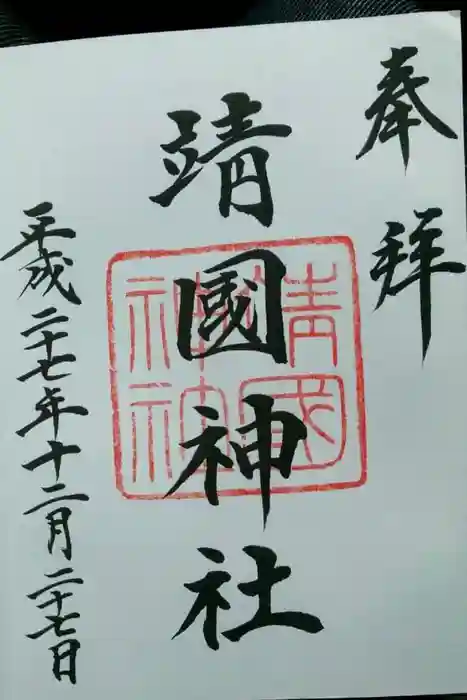 奉拜
靖國神社
靖國神社
平成二十七年十二月二十七日